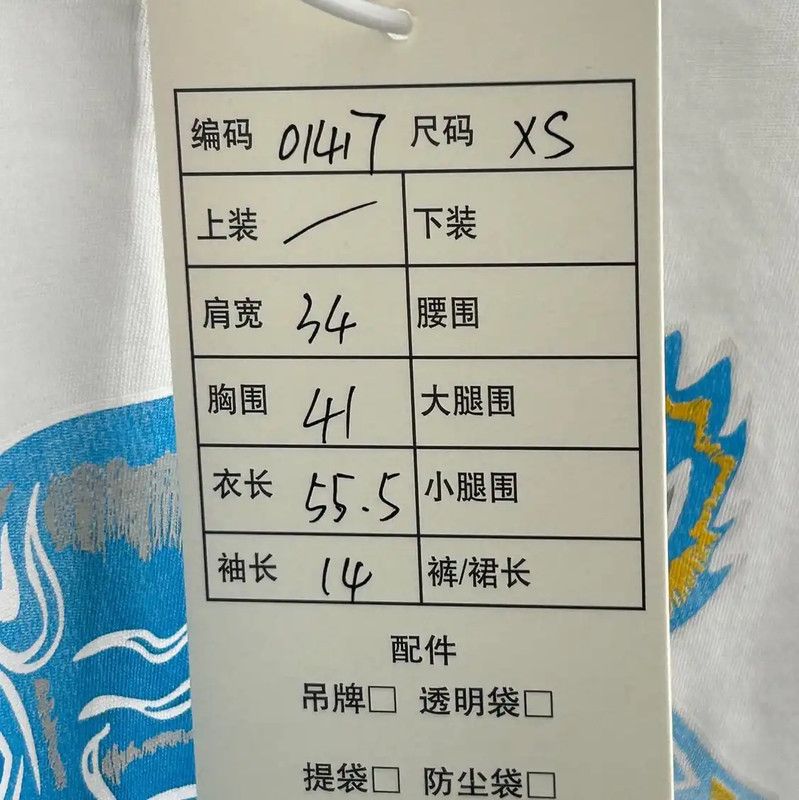 编码 01417 尺码 XS
上装 / 下装
肩宽 34 腰围
胸围 41 大腿围
衣长 55.5 小腿围
袖长 14 裤/裙长
配件
吊牌□ 透明袋□
提袋□ 防尘袋□